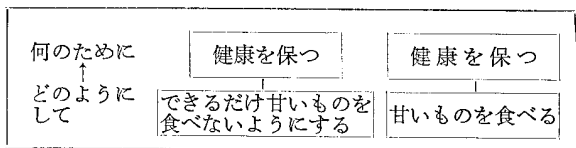 何のために
↑
どのように
して
健康を保つ
できるだけ甘いものを
食べないようにする
健康を保つ
甘いものを食べる